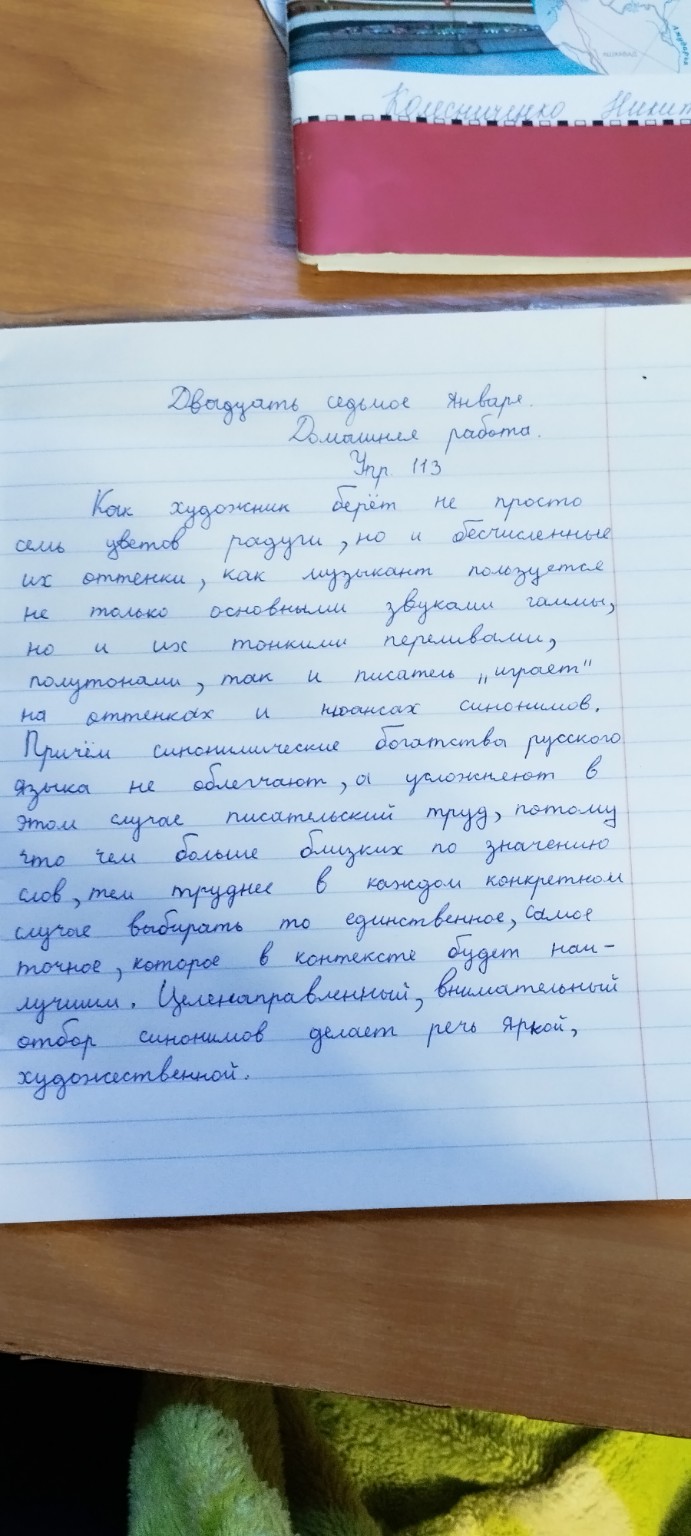 Колесниченко Никит
Двадцать седьмое января.
Домашняя работа.
Упр. 113
Как художник берёт не просто
семь цветов радуги, но и бесчисленные
их оттенки, как музыкант пользуется
не только основными звуками гаммы,
но и их тонкими переливами,
полутонами, так и писатель „играет"
на оттенках и нюансах синонимов.
Причём синонимические богатства русского
языка не облегчают, а усложняют в
этом случае писательский труд, потому
что чем больше близких по значению
слов, тем труднее в каждом конкретном
случае выбирать то единственное, самое
точное, которое в контексте будет наи-
лучшим. Целенаправленный, внимательный
отбор синонимов делает речь яркой,
художественной.